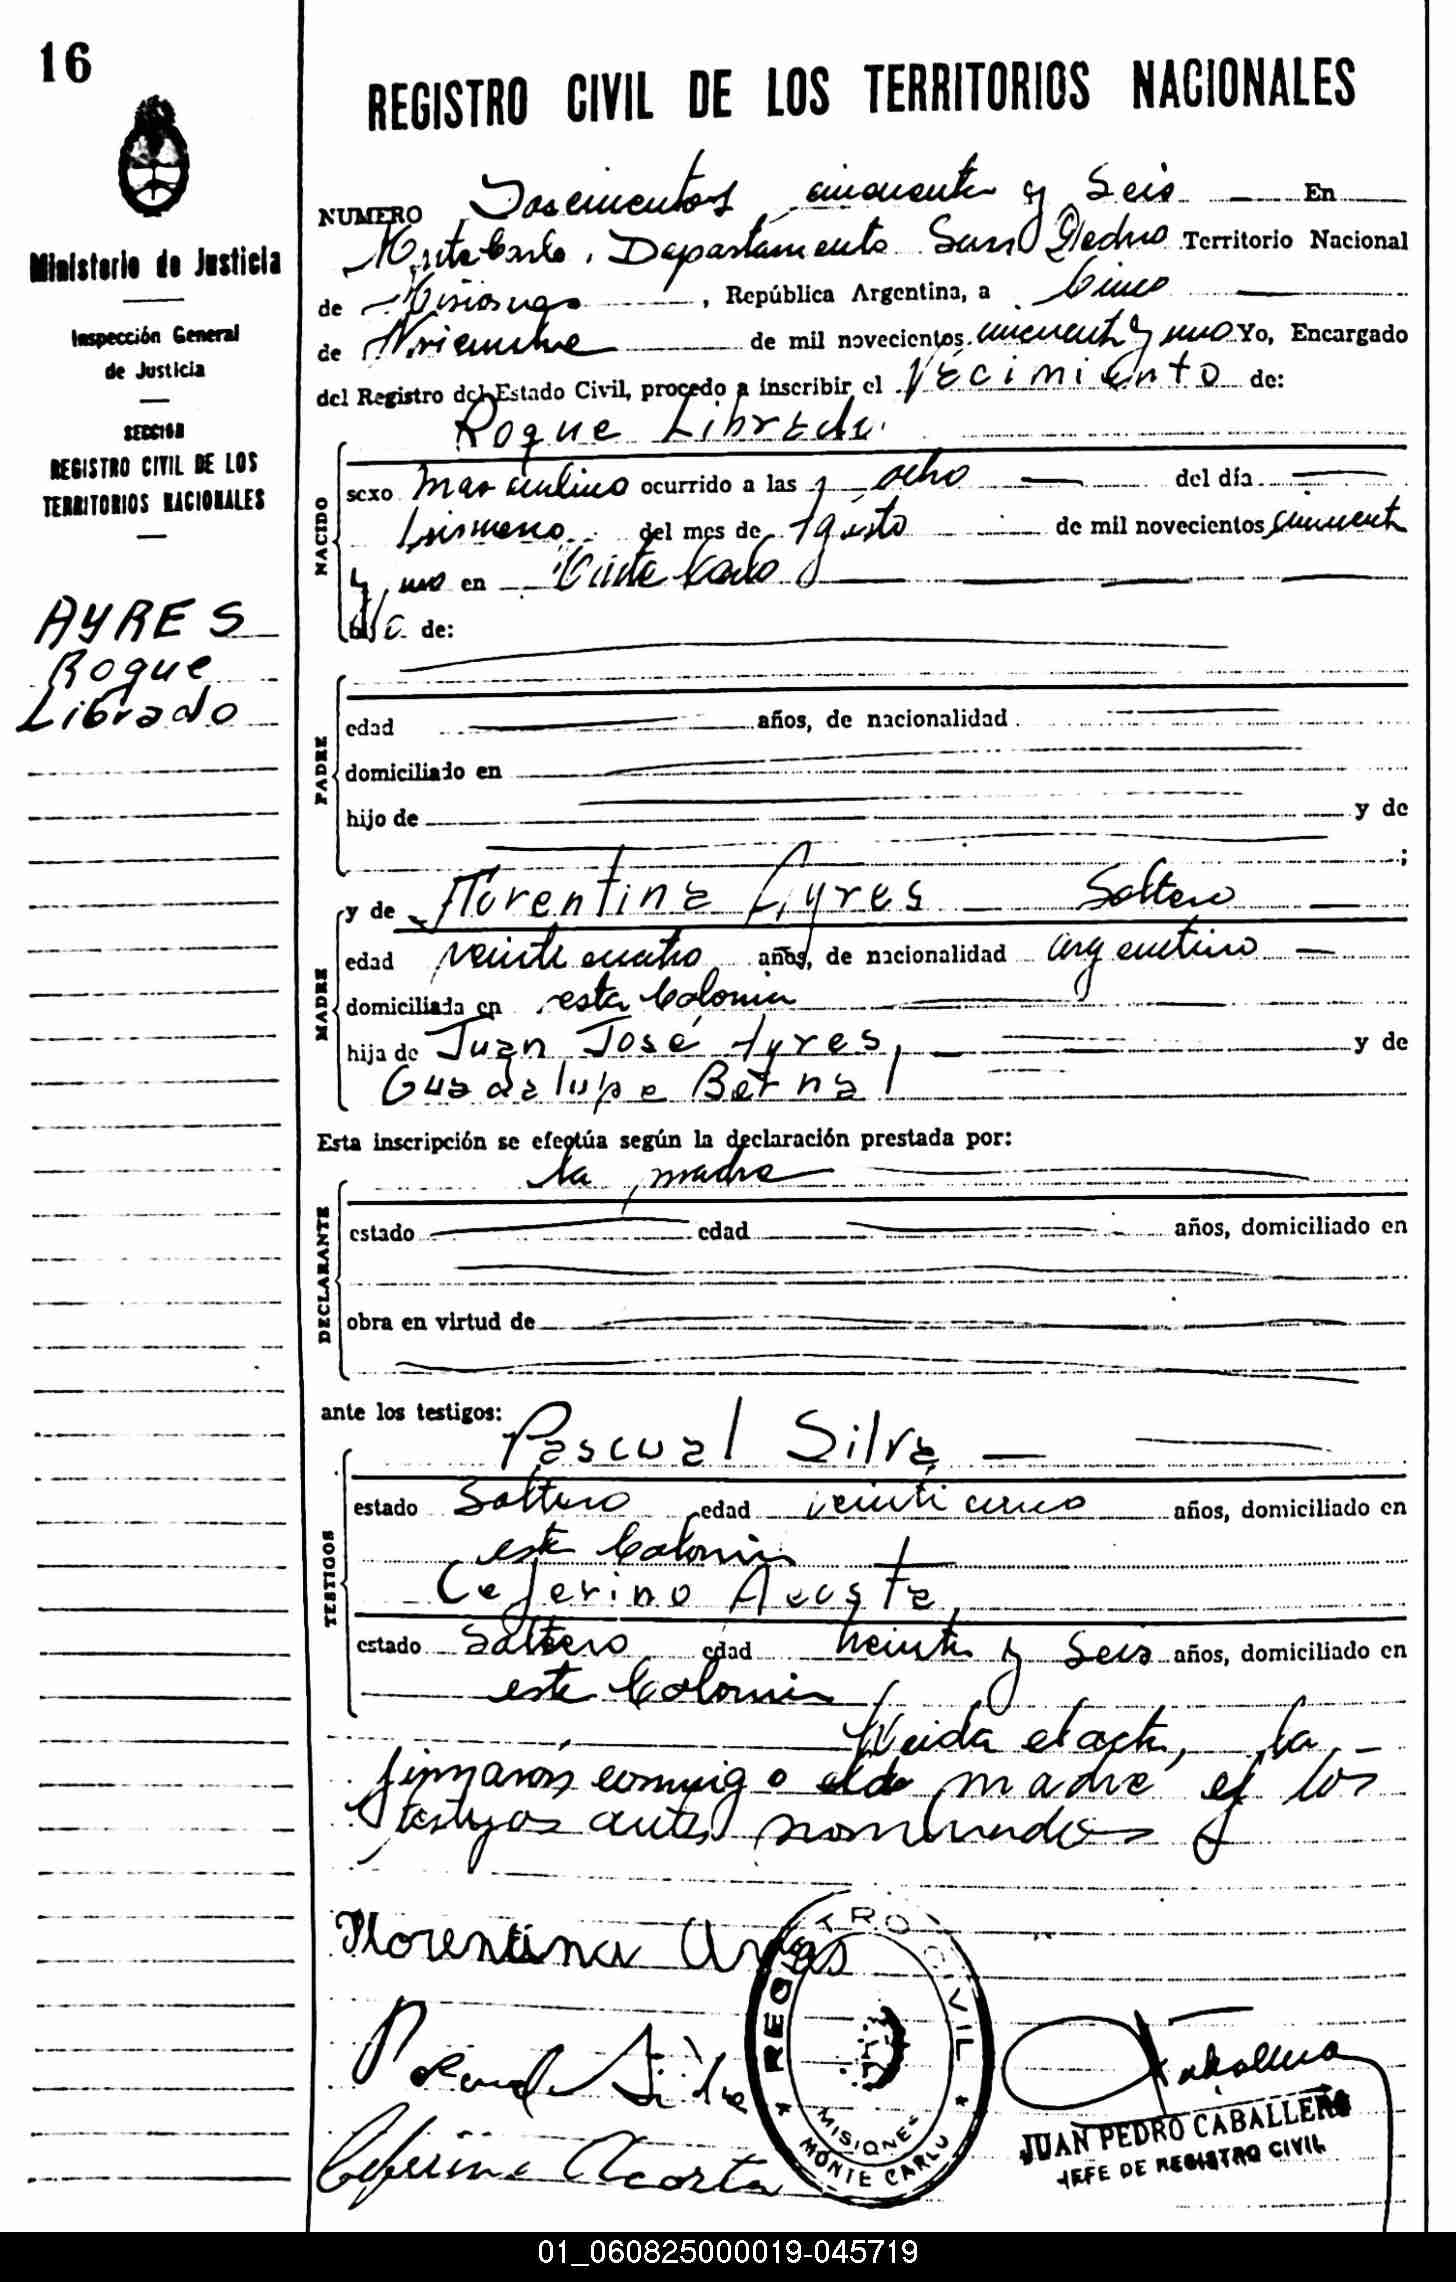 16
REGISTRO CIVIL DE LOS TERRITORIOS NACIONALES
Ministerio de Justicia
Inspección General
de Justicia
SECCION
REGISTRO CIVIL DE LOS
TERRITORIOS NACIONALES
AYRES
Roque
Librado
NUMERO Doscientos cincuenta y Seis En
Monte Carlo, Departamento San Pedro Territorio Nacional
de Misiones, República Argentina, a Cinco
de Noviembre de mil novecientos cincuenta y uno Yo, Encargado
del Registro del Estado Civil, procedo a inscribir el Nacimiento de:
Roque Librado
NACIDO
sexo masculino ocurrido a las ocho del día
del mes de Agosto de mil novecientos cincuenta
y uno en Monte Carlo
de:
PADRE
edad años, de nacionalidad
domiciliado en
hijo de y de
;
MADRE
y de Florentina Ayres Soltera
edad veinticuatro años, de nacionalidad argentina
domiciliada en esta Colonia
hija de Juan José Ayres, y de
Guadalupe Bernal
Esta inscripción se efectúa según la declaración prestada por:
DECLARANTE
la madre
estado edad años, domiciliado en
obra en virtud de
ante los testigos:
TESTIGOS
Pascual Silva
estado Soltero edad veinticinco años, domiciliado en
esta Colonia
Ceferino Acosta,
estado Soltero edad veinte y seis años, domiciliado en
esta Colonia
Leida el acta, la
firmaron conmigo la madre y los
testigos antes nombrados
Florentina Ayres
Pascual Silva
Ceferino Acosta
REGISTRO CIVIL
MISIONES
MONTE CARLO
Caballero
JUAN PEDRO CABALLERO
JEFE DE REGISTRO CIVIL
01_060825000019-045719